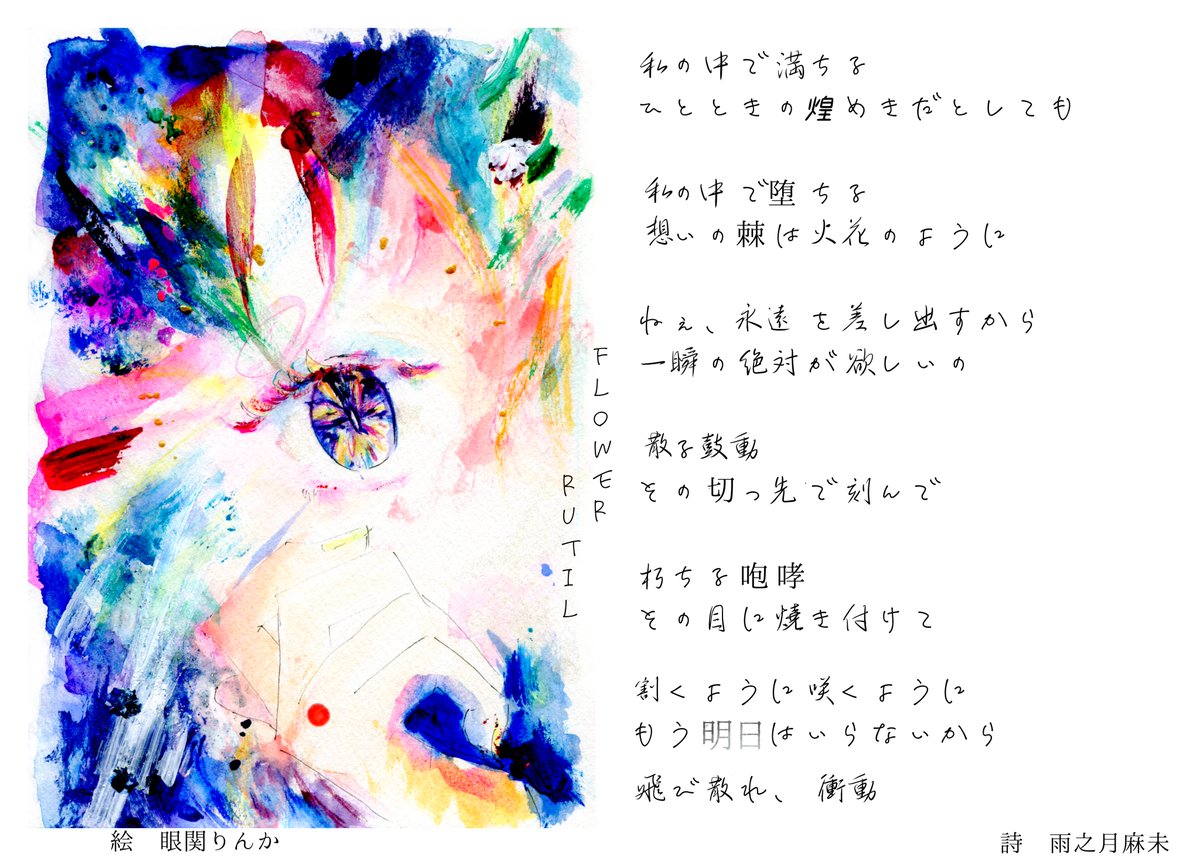 私の中で満ちる
ひとときの煌めきだとしても
私の中で堕ちる
想いの棘は火花のように
ねぇ、永遠を差し出すから
一瞬の絶対が欲しいの
散る鼓動
その切っ先で刻んで
朽ちる咆哮
その目に焼き付けて
割くように咲くように
もう明日はいらないから
飛び散れ、衝動
FLOWER
RUTIL
絵　眼関りんか
詩　雨之月麻未